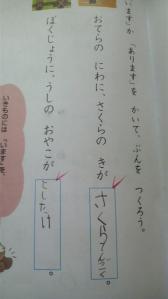 います」か 「あります」を かいて、ぶんを つくろう。
おてらの にわに、さくらの きが さくらんぼ。
ぼくじょうに、うしの おやこが としたけ。
いきものには 「います」を、